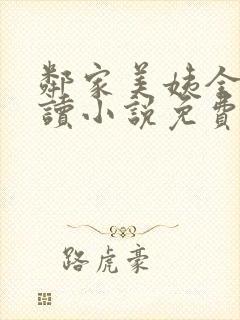 鄰家美姨全
讀小說免費
路虎豪